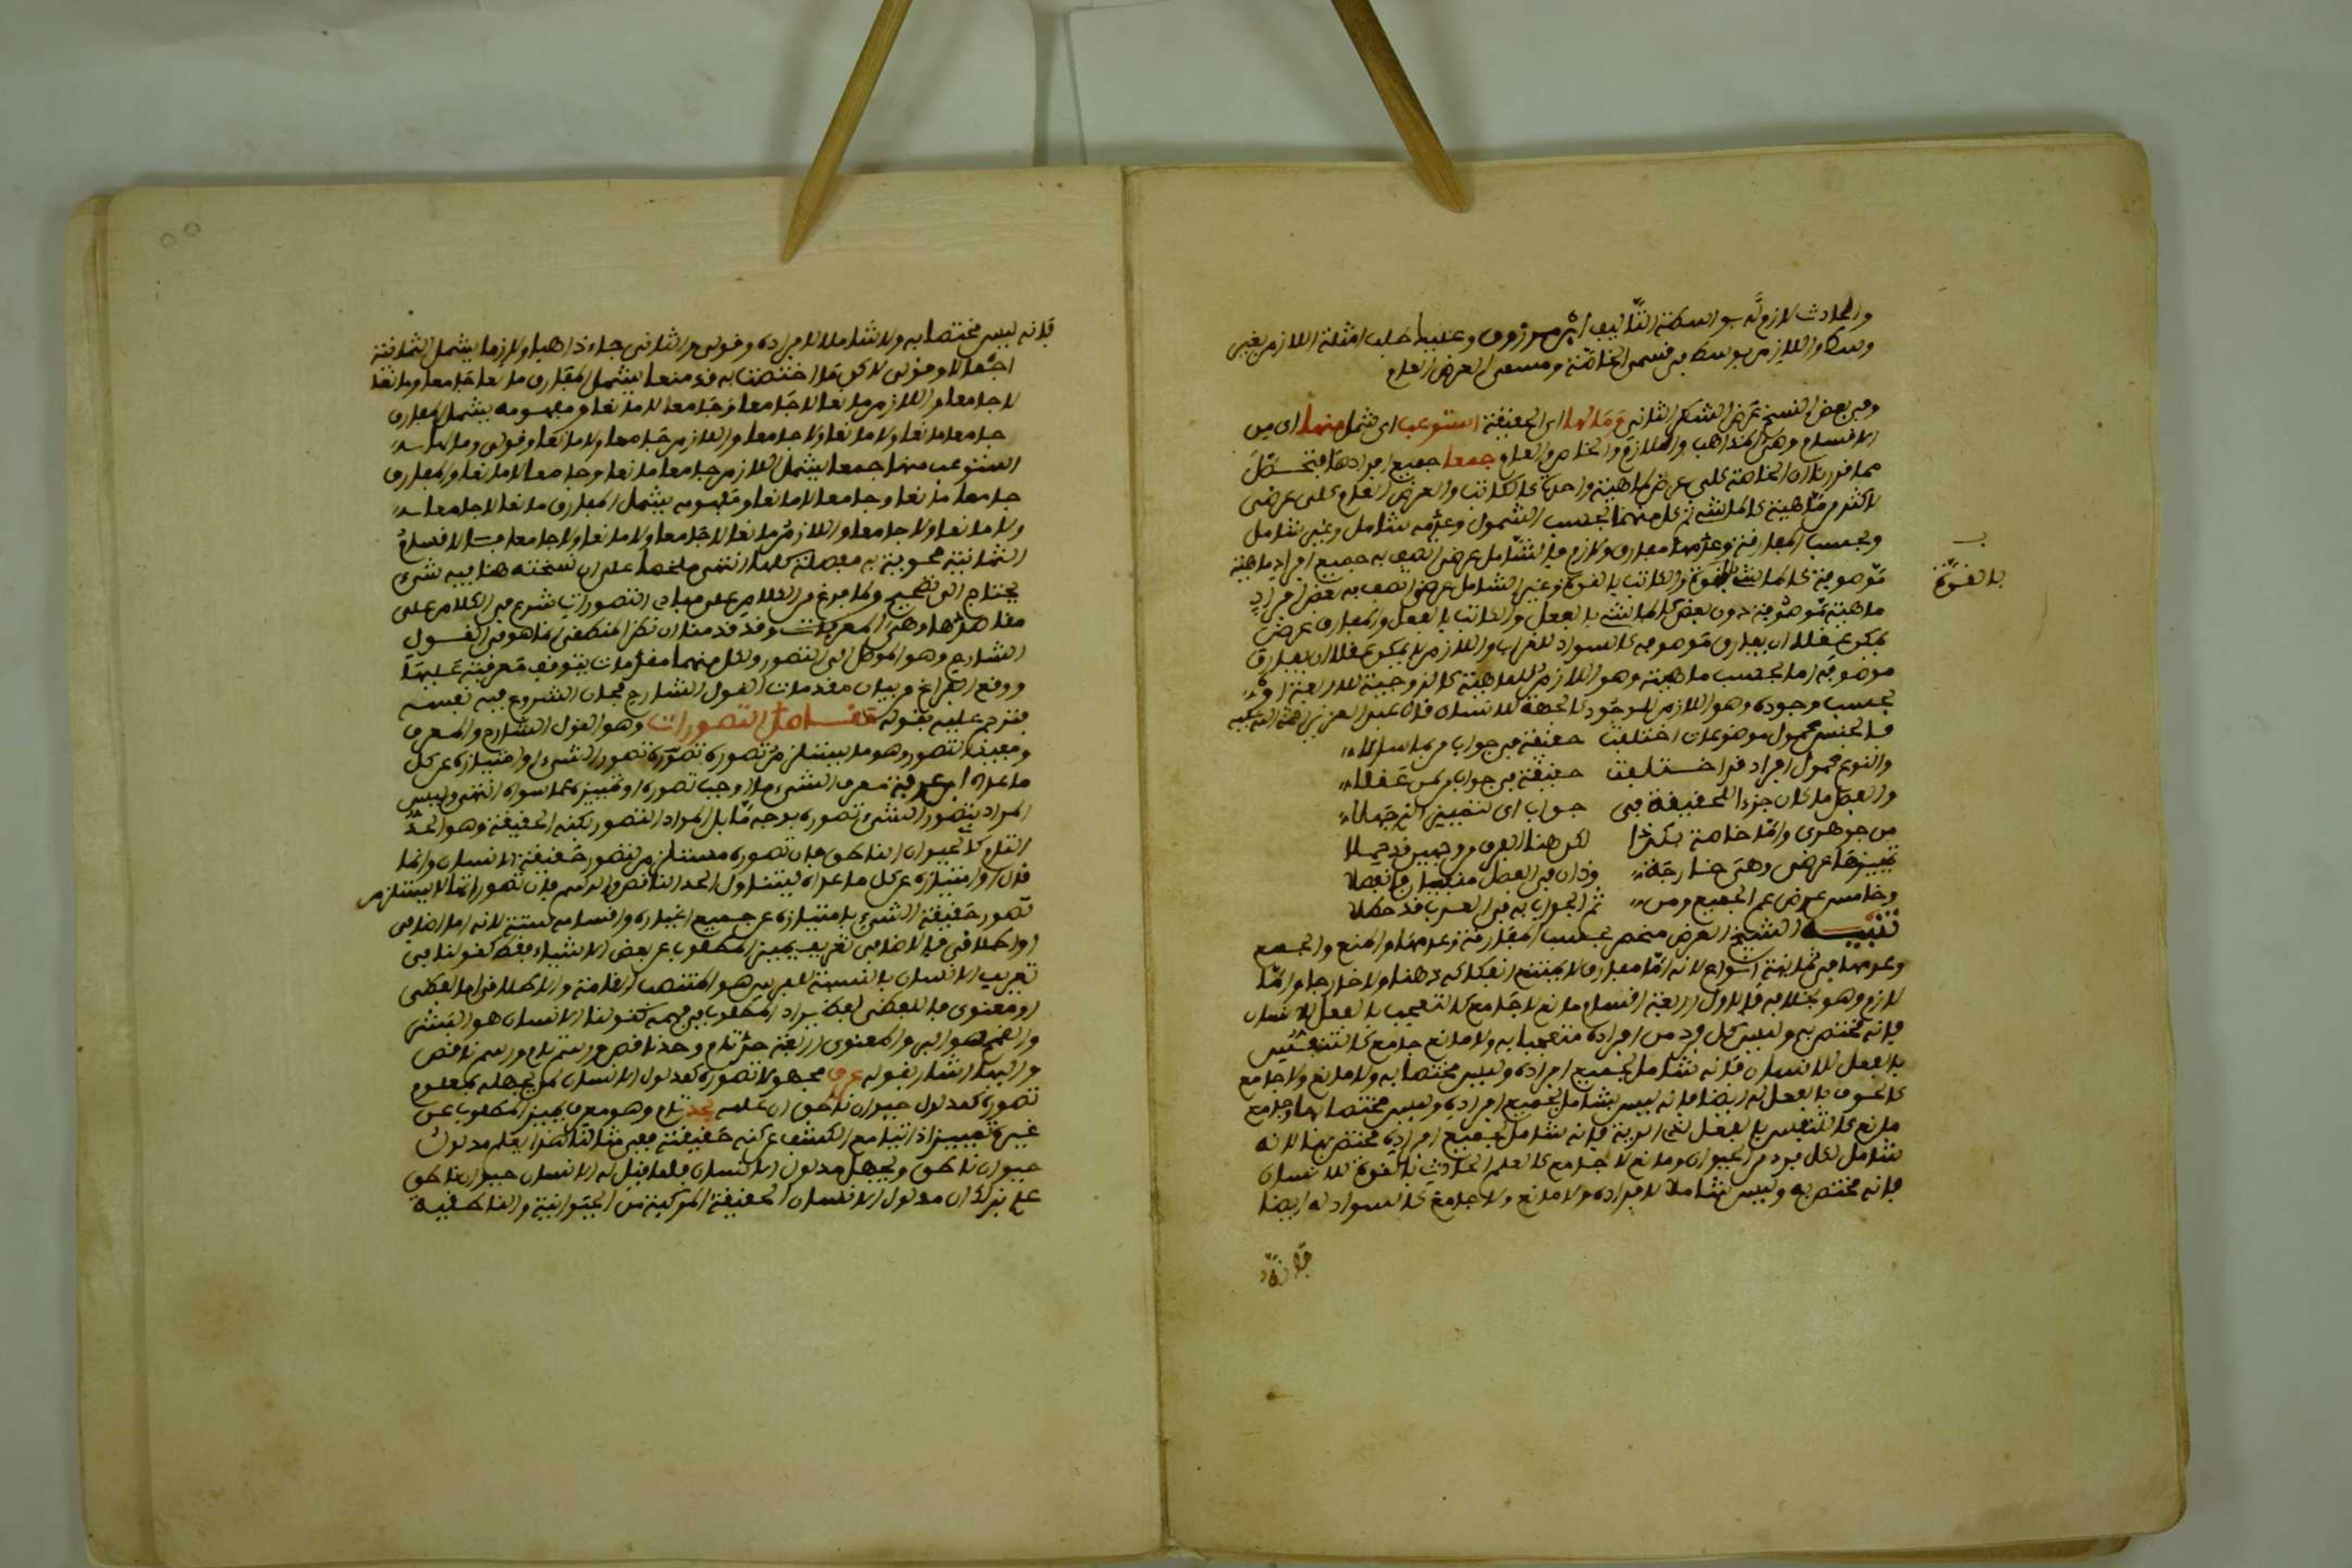 والحادث لازم له بواسطة التأليف ابن مرزوق وعليها طلب امثلة اللازم بغير
وسط واللازم بوسط في قسمي الخاصة وقسمي العرض العام
وفي بعض النسخ عوض الشطر الثاني وما لها اي الحقيقة استوعب اي شمل منها اي من
الاقسام وهي الذاهب واللازم والخاص والعام جمعا جميع افرادها فتحصل
مما قررنا ان الخاصة كلي عرض لماهية واحدة كالكاتب والعرض العام كلي عرض
لاكثر من ماهية كالماشي ثم كل منهما بحسب الشمول وعدمه شامل وغير شامل
وبحسب المفارقة وعدمها مفارق ولازم فالشامل عرض اتصف به جميع افراد ماهية
موصوفة كالماشي بالقوة والكاتب بالقوة وغير الشامل عرض اتصف به بعض افراد
بالقوة
ماهية موصوفة دون بعض كالماشي بالفعل والكاتب بالفعل والمفارق عرض
يمكن عقلا ان يفارق موصوفه كالسواد للغراب واللازم ما لا يمكن عقلا ان يفارق
موصوفه اما بحسب ماهية وهو اللازم للماهية كالزوجية للاربعة او
بحسب وجوده وهو اللازم للوجود كالجهة للانسان قال عبد العزيز
فالجنس محمول موضوعات اختلفت حقيقة في جواب من بما سالا
والنوع محمول افراد قد اختلفت حقيقة في جواب من عقلا
والفصل ما كان جزءا للحقيقة في جواب اي لتمييز الذي جهلا
من جوهري واما خاصة فكذا لكن هنا الفرق من وجهين قد حصلا
تمييزها عرضي وهي خارجة وذان في الفصل منفيان فانفصلا
وخامس عرض عم الجميع ومن ثم الجواب به في العرب قد حظلا
تنبيه الشيخ العرض منحصر بحسب المفارقة وعدمها والمنع والجمع
وعدمهما في ثمانية انواع لانه اما مفارق لا يمتنع انفكاكه ذهنا ولا خارجا واما
لازم وهو بخلافه فالاول اربعة اقسام مانع لا جامع كالتعجب بالفعل للانسان
فانه مختص به وليس كل فرد من افراده متعجبا به ولا مانع جامع كالتنفس
بالفعل للانسان فانه شامل لجميع افراده وليس مختصا به ولا مانع ولا جامع
كالخوف بالفعل له ايضا فانه ليس بشامل لجميع افراده وليس مختصا بها وجامع
مانع كالتنفس بالفعل لذي الرية فانه شامل لجميع افراده مختص بها لانه
شامل لكل فرد من الحيوان ومانع لا جامع كالعلم الحادث بالقوة للانسان
فانه مختص به وليس شاملا لافراده ولا مانع ولا جامع كالسواد له ايضا
فانه
فانه ليس مختصا به ولا شاملا لافراده وقولي في الثاني جاء ذاهبا ولازما يشمل الثمانية
جمعا لا وقولي لا كل ما اختصت به قد منعا يشمل المفارق مانعا جامعا ومانعا
لا جامعا واللازم مانعا لا جامعا وجامعا لا مانعا ومفهومه يشمل المفارق
جامعا مانعا ولا مانعا ولا جامعا واللازم جامعا ولا مانعا وقولي وما لها
استوعب منها جمعا يشمل اللازم جامعا مانعا وجامعا لا مانعا والمفارق
جامعا مانعا وجامعا لا مانعا ومفهومه يشمل المفارق مانعا لا جامعا
ولا مانعا ولا جامعا واللازم مانعا لا جامعا ولا مانعا ولا جامعا فالاقسام
الثمانية محوية به مفصلة كلها انتهى ملخصا على ان نسخته هنا فيه شيء
يحتاج الى تصحيح ولما فرغ من الكلام على مبادي التصورات شرع في الكلام على
مقاصدها وهي المعرفات وقد قدمنا ان نظر المنطقي انما هو في القول
الشارح وهو الموصل الى التصور ولكل منهما مقدمات يتوقف معرفته عليها
ووقع الفراغ من بيان مقدمات القول الشارح فحان الشروع فيه نفسه
فترجم عليه بقوله مقاصد التصورات وهو القول الشارح والمعرف
ومفيد التصور وهو ما يستلزم تصوره تصور الشيء او امتيازه عن كل
ما عداه ابن عرفة معرف الشيء ما اوجب تصوره او تمييزه عما سواه انتهى وليس
المراد بتصور الشيء تصوره بوجه ما بل المراد التصور بكنه الحقيقة وهو الحد
التام كالحيوان الناطق فان تصوره مستلزم لتصور حقيقة الانسان وانما
قال او امتيازه عن كل ما عداه ليتناول الحد الناقص والرسم فان تصوراتها لا يستلزم
تصور حقيقة الشيء بل امتيازه عن جميع اغياره واقسامه ستة لانه اما اضافي
او اطلاقي فالاضافي تعريف يميز المطلوب عن بعض الاشياء فقط كقولنا في
تعريف الانسان بالنسبة للفرس هو المنتصب القامة والاطلاقي اما لفظي
او معنوي فاللفظي لفظ يراد المطلوب في فهمه كقولنا الانسان هو البشر
والقمح هو البر والمعنوي اربعة حد تام وحد ناقص ورسم تام ورسم ناقص
واليها اشار بقوله عرف مجهولا تصوره كمدلول الانسان لمن يجهله بمعلوم
تصوره كمدلول حيوان ناطق ان علمه بحد تام وهو معرف يميز المطلوب عن
غيره تمييزا ذاتيا مع الكشف عن كنه حقيقته ففي مثالنا هذا يعلم مدلول
حيوان ناطق ويجهل مدلول الانسان فلما قيل له الانسان حيوان ناطق
علم بذلك ان مدلول الانسان الحقيقة المركبة من الحيوانية والناطقية